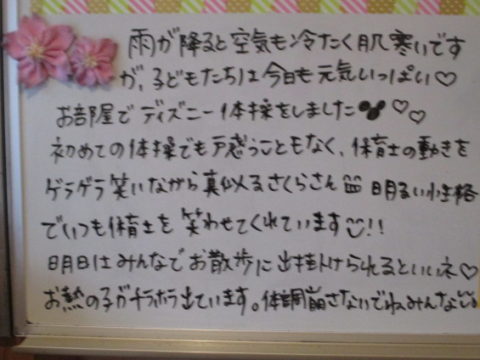 雨が降ると空気も冷たく肌寒いです
が、子どもたちは今日も元気いっぱい♡
お部屋でディズニー体操をしました♡♡
初めての体操でも戸惑うこともなく、保育士の動きを
ゲラゲラ笑いながら真似るさくらさん 明るい性格
でいつも保育士を笑わせてくれています!!
明日はみんなでお散歩に出掛けられるといいネ♡
お熱の子がチラホラ出ています。体調崩さないでねみんな。